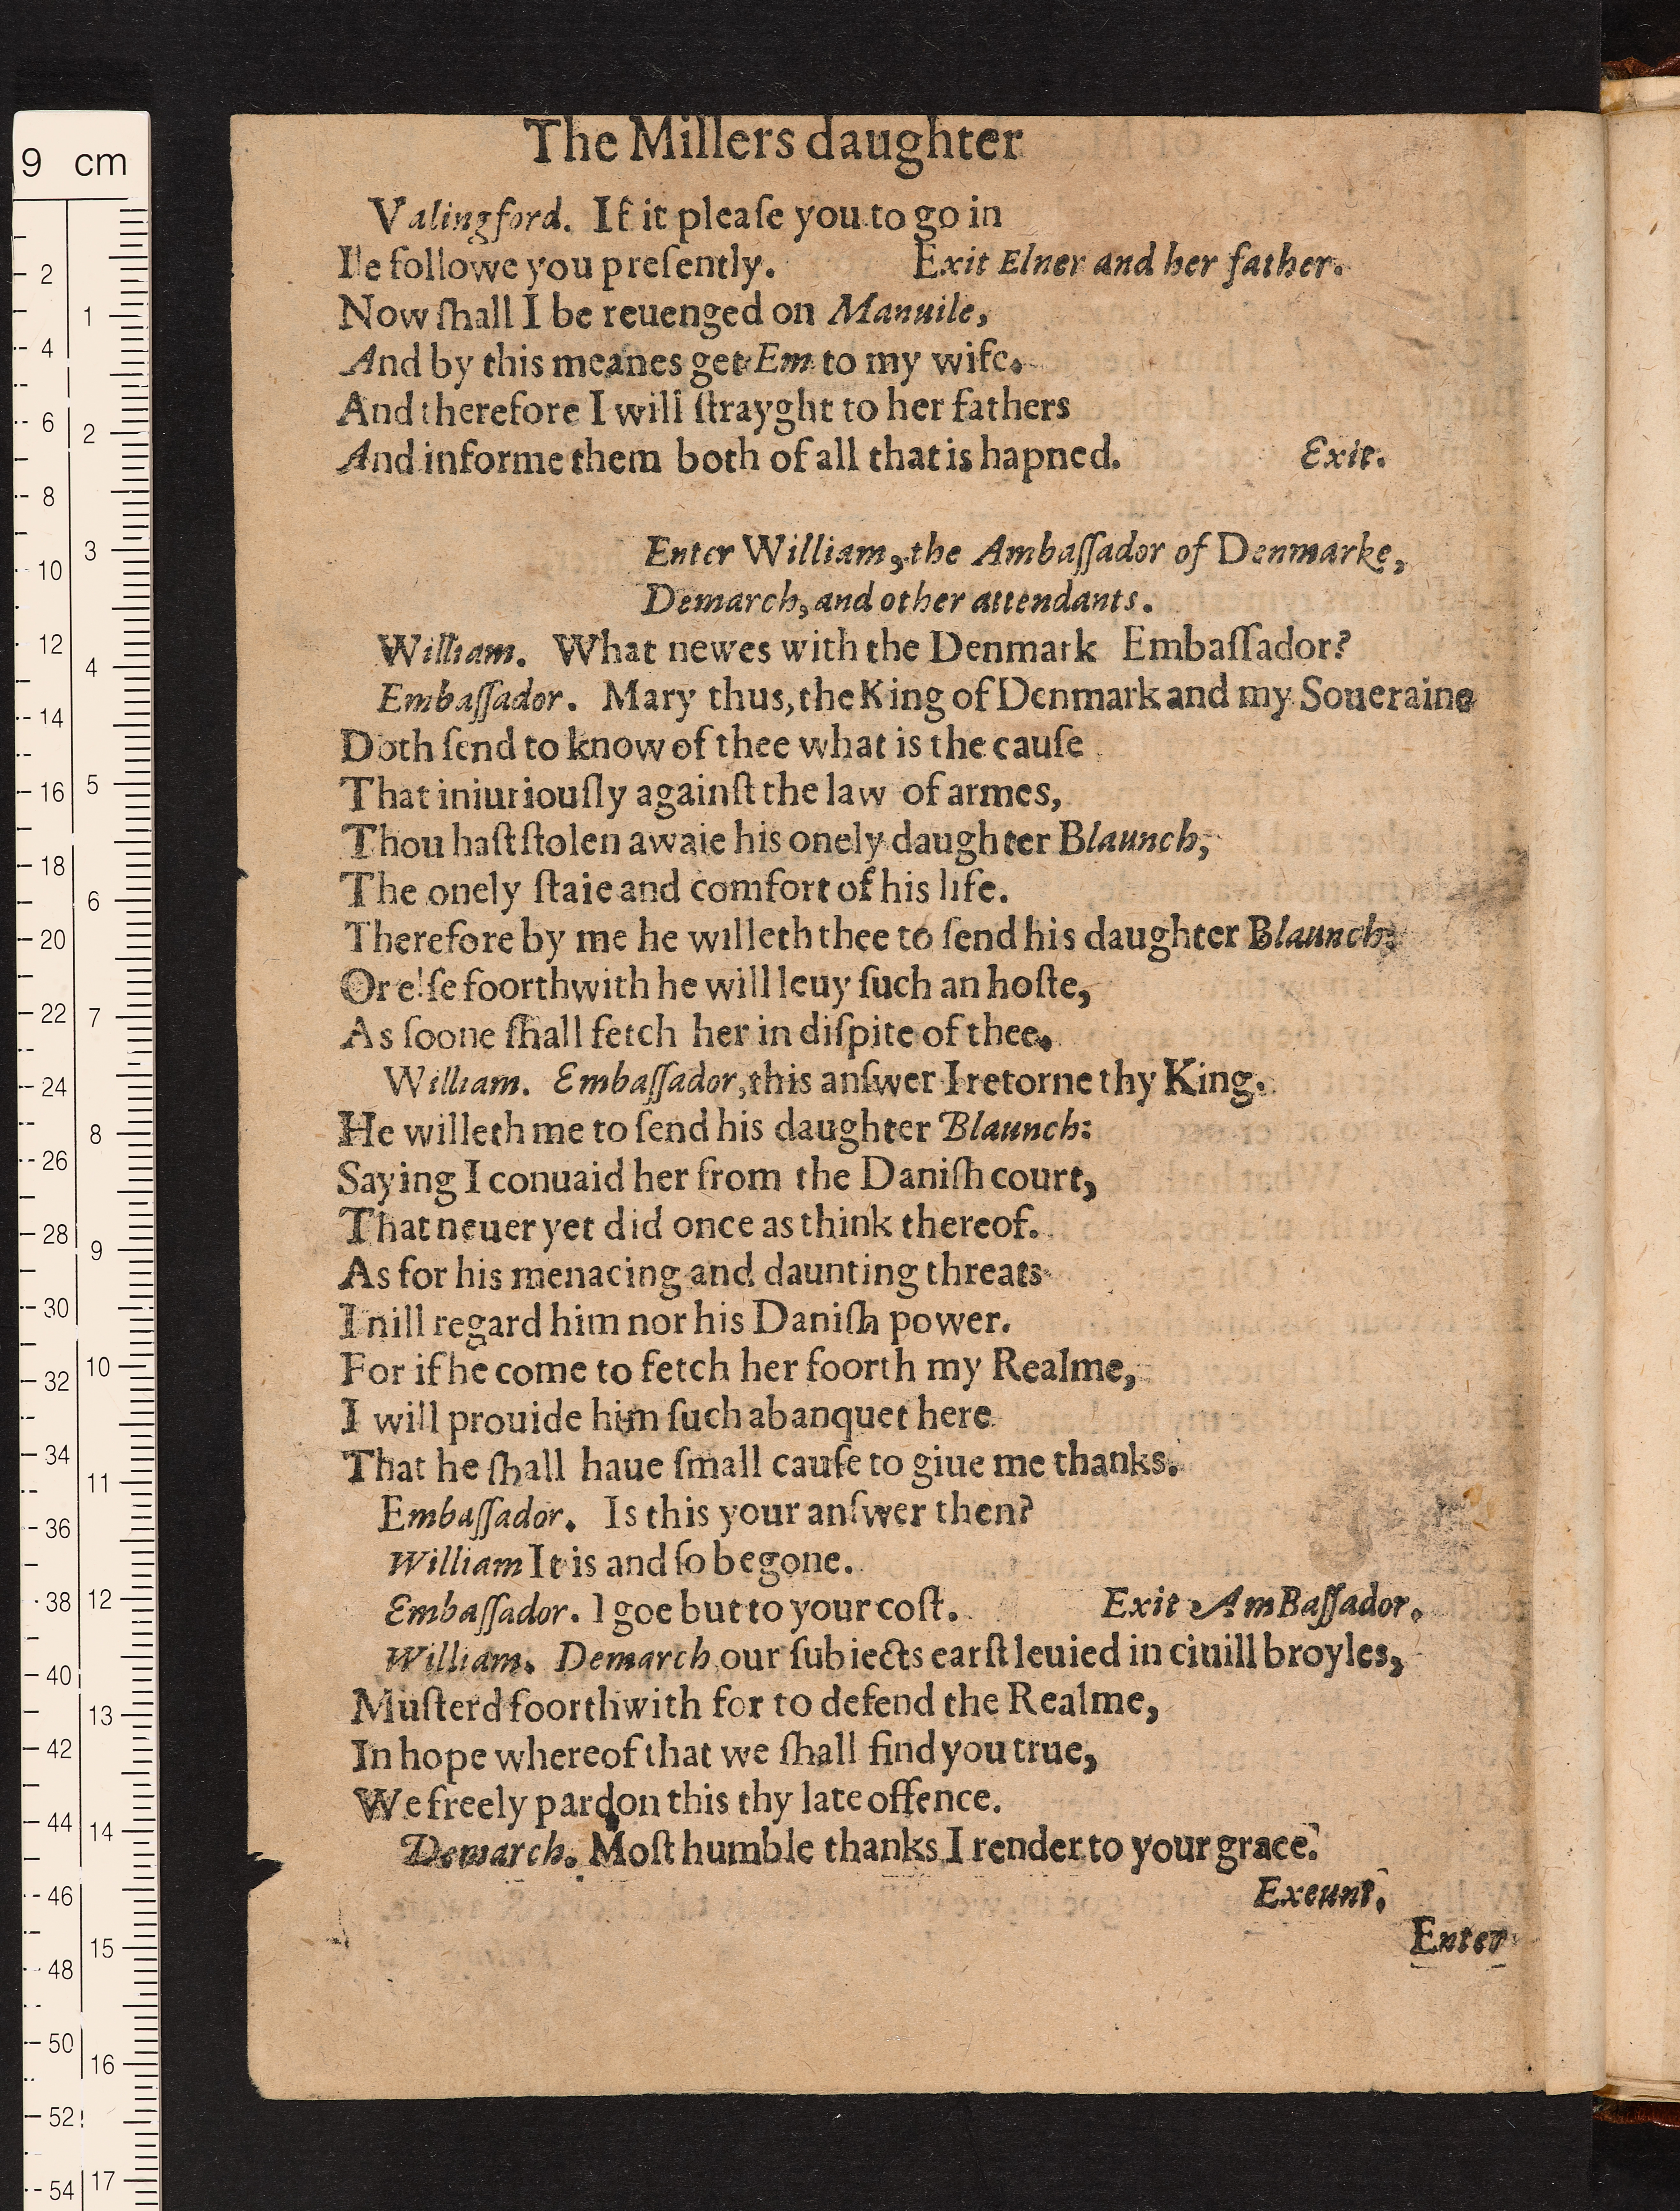 The Millers daughter
Valingford. If it pleaſe you to go in
Ile followe you preſently. Exit Elner and her father.
Now ſhall I be reuenged on Manuile,
And by this meanes get Em to my wife.
And therefore I will ſtrayght to her fathers
And informe them both of all that is hapned. Exit.
Enter William, the Ambaſſador of Denmarke,
Demarch, and other attendants.
William. What newes with the Denmark Embaſſador?
Embaſſador. Mary thus, the King of Denmark and my Soueraine
Doth ſend to know of thee what is the cauſe
That iniuriouſly againſt the law of armes,
Thou haſt ſtolen awaie his onely daughter Blaunch,
The onely ſtaie and comfort of his life.
Therefore by me he willeth thee to ſend his daughter Blaunch:
Or elſe foorthwith he will leuy ſuch an hoſte,
As ſoone ſhall fetch her in diſpite of thee.
William. Embaſſador, this anſwer I retorne thy King.
He willeth me to ſend his daughter Blaunch:
Saying I conuaid her from the Daniſh court,
That neuer yet did once as think thereof.
As for his menacing and daunting threats
I nill regard him nor his Daniſh power.
For if he come to fetch her foorth my Realme,
I will prouide him ſuch a banquet here
That he ſhall haue ſmall cauſe to giue me thanks.
Embaſſador. Is this your anſwer then?
William It is and ſo begone.
Embaſſador. I goe but to your coſt. Exit AmBaſſador.
William. Demarch our ſubiects earſt leuied in ciuill broyles,
Muſterd foorthwith for to defend the Realme,
In hope whereof that we ſhall find you true,
We freely pardon this thy late offence.
Demarch. Moſt humble thanks I render to your grace.
Exeunt.
Enter
9 cm
2
4
6
8
10
12
14
16
18
20
22
24
26
28
30
32
34
36
38
40
42
44
46
48
50
52
54
1
2
3
4
5
6
7
8
9
10
11
12
13
14
15
16
17